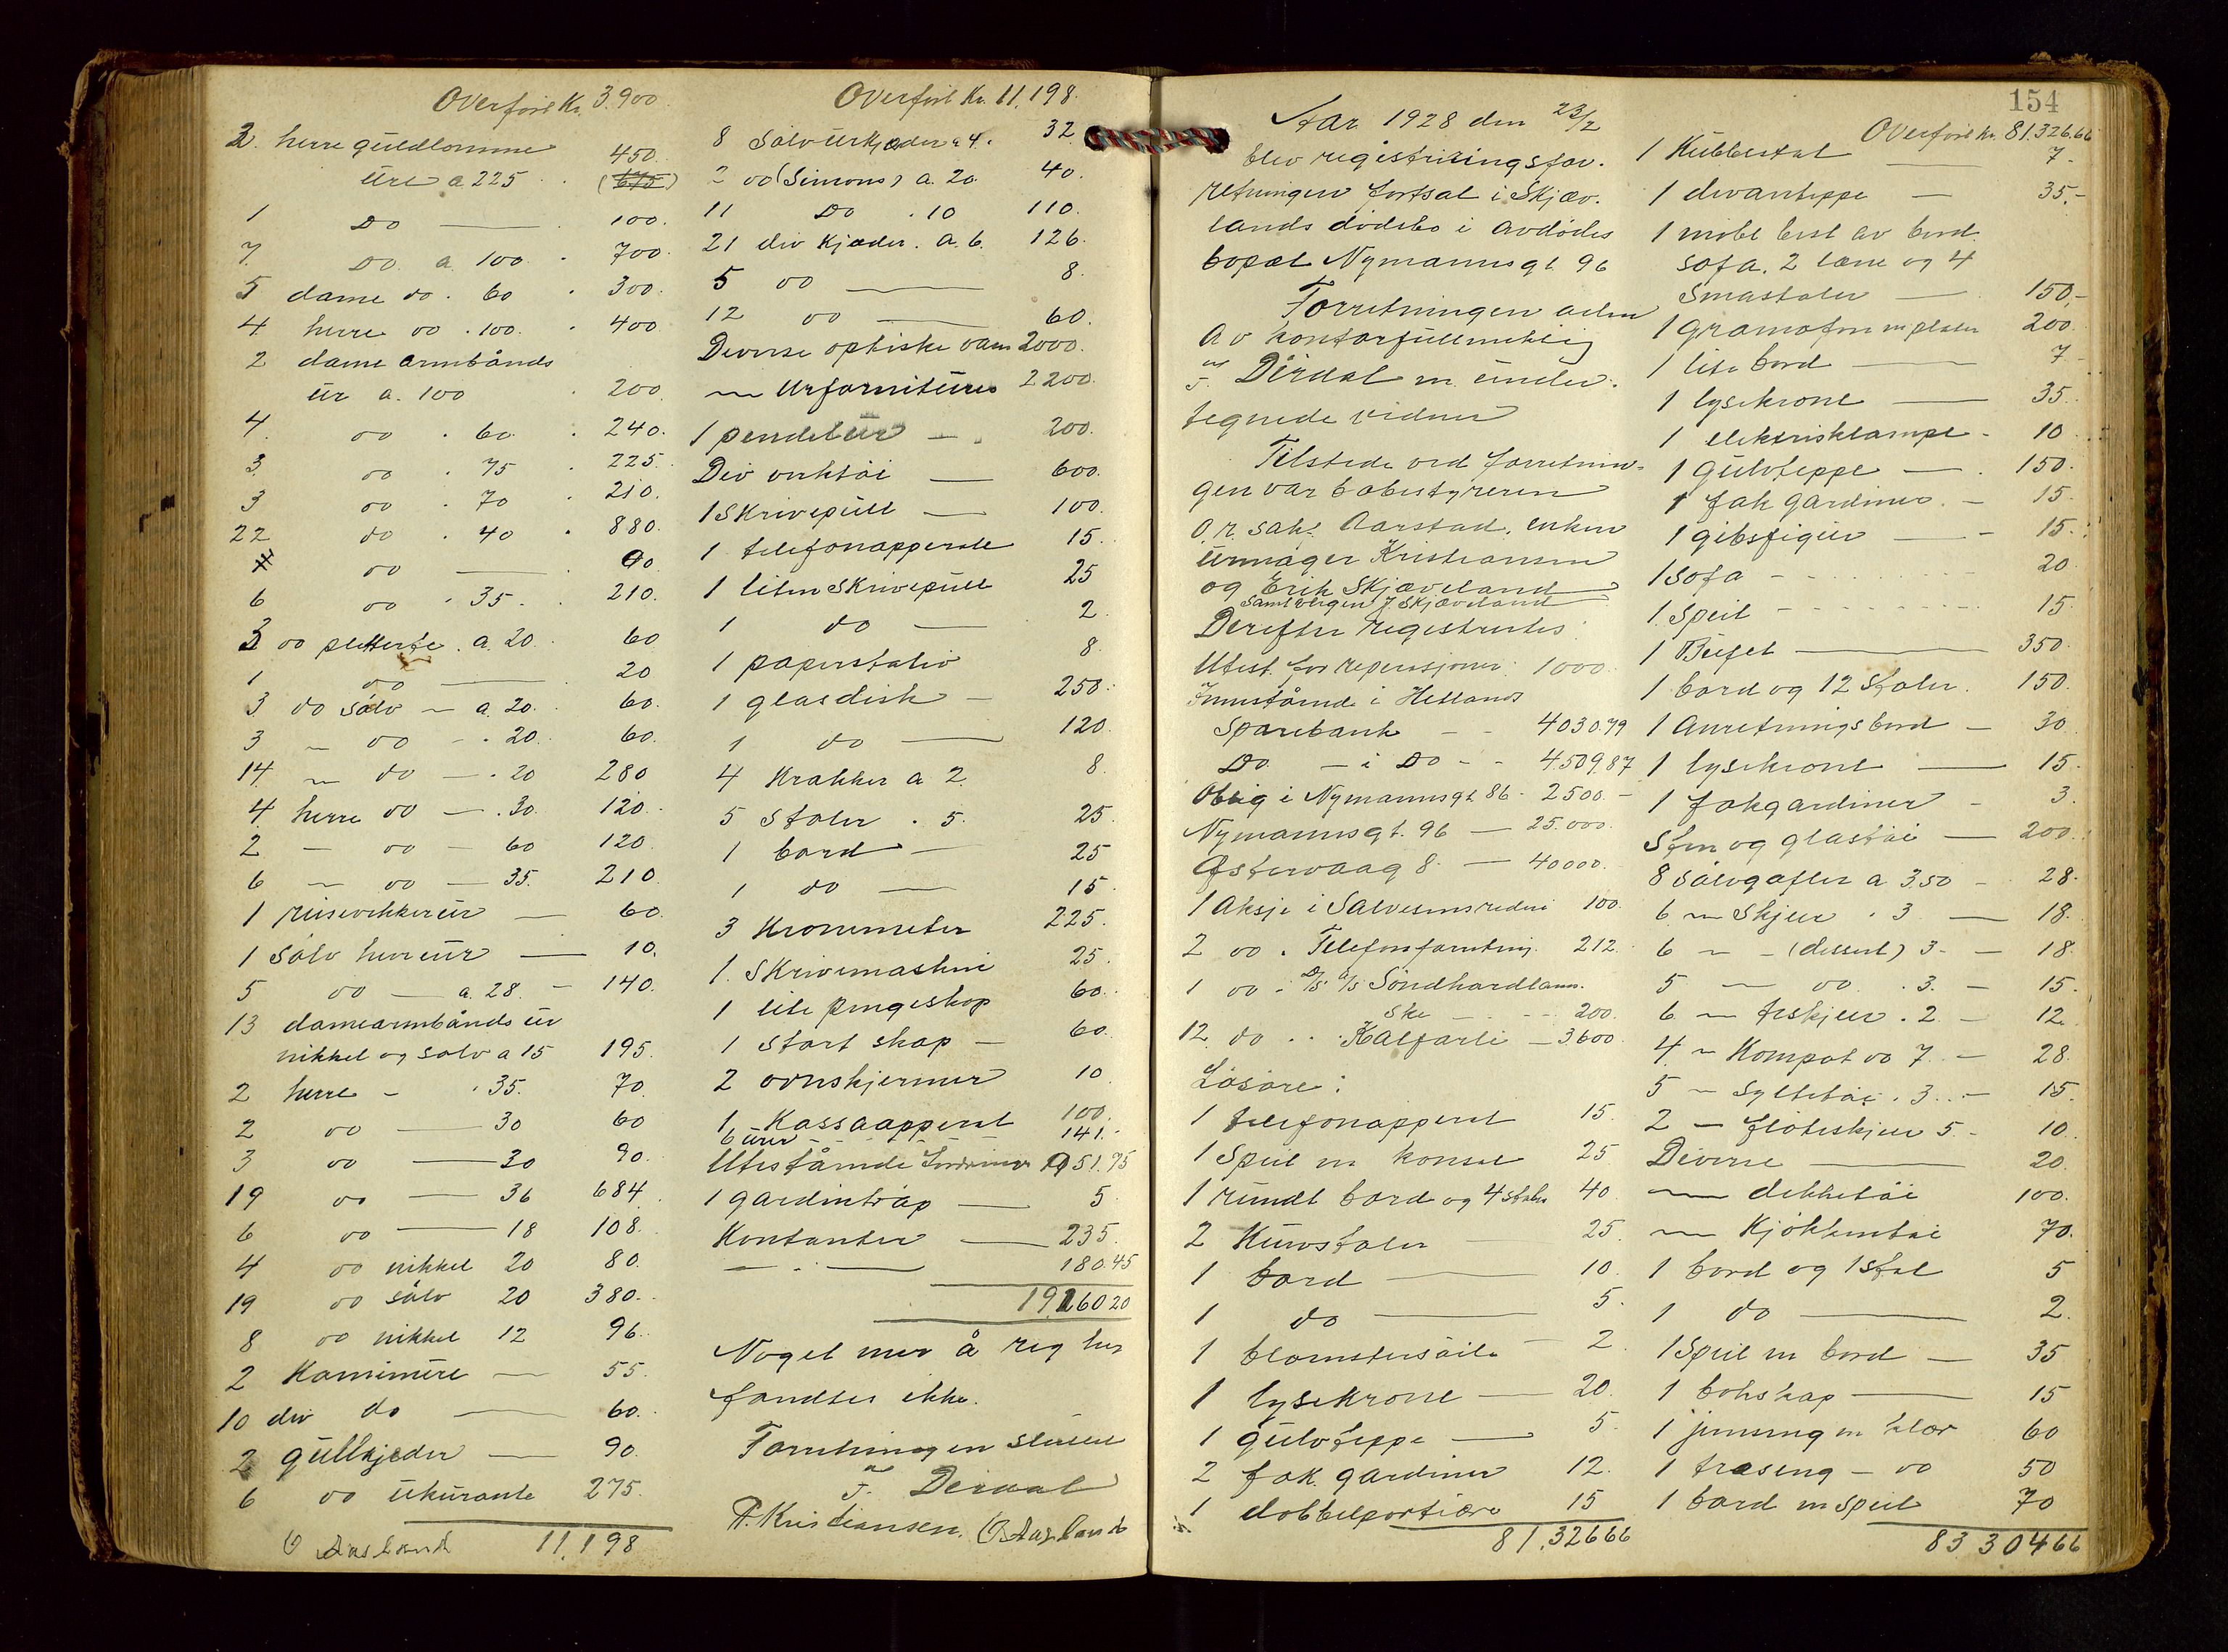 Overført Kr. 3.900.
2 herre guldlomme
ure a 225 . . 450.
(675)
1 Do — 100.
7 Do a 100 . 700.
5 dame do . 60 . 300.
4 herre do . 100. . 400
2 dame armbånds
ur a. 100 . 200.
4 do . 60. . 240.
3 do . 75 . 225.
3 do . 70 . 210.
22 do . 40 . 880.
do — 90.
6 do . 35. . 210.
3 do pletterte . a. 20. 60
1 do — 20
3 do sølv — a. 20. 60.
3 — do — . 20. 60.
14 — do — . 20 280
4 herre do — . 30. 120.
2 — do — 60 120.
6 — do — 35. 210.
1 reisevekkerur — 60.
1 sølv herreur — 10.
5 do — a. 28. — 140.
13 damearmbånds ur
nikkel og sølv a 15 195.
2 herre — . 35. 70.
2 do — 30 60
3 do — 30 90.
19 do — 36 684.
6 do — 18 108.
4 do nikkel 20 80.
19 do sølv 20 380.
8 do nikkel 12 96.
2 Kaminure — 55.
10 div do — 60.
2 gullkjeder — 90.
6 do ukurante 275.
O Aasland 11.198
Overført Kr. 11.198.
8 sølvurkjeder a 4. 32.
2 do (Simons) a. 20. 40.
11 Do . 10 110.
21 div kjeder. a. 6. 126.
5 do — 8.
12 do — 60.
Diverse optiske varer 2000.
— Urfornitures 2200.
1 pendelur — . 200.
Div verktøi — 600.
1 Skrivepult — 100.
1 telefonapperate 15.
1 liten skrivepult 25
1 do — 2.
1 papirstativ 8.
1 glasdisk — 250.
1 do — 120.
4 Krakker a 2. 8.
5 Stoler . 5. 25.
1 bord — 25
1 do — 15.
3 Kronometer 225.
1. Skrivemaskine 25.
1 lite pengeskap 60.
1 stort skap — 60.
2 ovnskjermer 10.
1 Kassaapperat 100.
6 urer 141.
Utestående fordringer 951.75
1 gardintrap — 5.
Kontanter — 235.
— . — 180.45
19.260 20
Noget mer å reg her
fandtes ikke.
Forretningen sluttet
F. Dirdal
P. Kristiansen. O Aasland
154
Aar 1928 den 23/2
blev registreringsfor.
retningen fortsat i Skjæv.
lands dødsbo i avdødes
bopæl Nymannsgt. 96
Forretningen adm
av kontorfullmektig
F. Dirdal m under.
tegnede vidner
Tilstede ved forretnin-
gen var bobestyreren
O. r. sakf. Aarstad, enken
urmager Kristiansen
og Erik Skjæveland
samt vergen J Skjæveland
Derefter registrertes
Utest. for reperasjoner. 1000.
Innestående i Hetlands
Sparebank — 4030.79
Do — i Do — 4509.87
Oblig i Nymannsgt. 86 - 2500.-
Nymannsgt. 96 — 25.000.
Østervaag 8. — 40000.
1 Aksje i Salvesensrederi 100.
2 do . Telefonforretning. 212.
1 do . D/S A/S Søndhordlann.
ske — 200.
12 do . . Kalfarli — 3600.
Løsøre:
1 telefonapperat 15.
1 Speil m konsol 25
1 rundt bord og 4 stoler 40.
2 Kurvstoler — 25.
1 bord — 10.
1 do — 5.
1 blomstersøile — 2.
1 lysekrone — 20.
1 gulvteppe — 5.
2 fak. gardiner 12.
1 dobbelportiere 15
81.32666
Overført kr. 81.326.66
1 Kubbestol — 7.
1 divanteppe — 35.-
1 møbl best av bord.
sofa. 2 læne og 4
småstoler — 150,-
1 gramofon m plater 200.
1 lite bord — 7
1 lysekrone — 35.
1 elektrisklampe - 10
1 gulvteppe — . 150.
1 fak gardiner. — 15.
1 gibsfigur — 15.
1 sofa - - - 20
1. Speil - - - 15.
1 Bufet — 350.
1 bord og 12 stoler. 150.
1 Anretningsbord — 30.
1 lysekrone — 15.
1 fakgardiner - 3.
Sten og glastøi — 200.
8 sølvgafler a 3.50 — 28.
6 — skjeer . 3 — 18.
6 — - (dessert) 3. — 18.
5 — do . 3. — 15.
6 — teskjeer . 2 — 12.
4 — Kompot do 7 — 28.
5 — syltetøi . 3 . — 15.
2 — fløteskjeer 5. — 10.
Diverse — 20.
— dekketøi 100.
— Kjøkkentøi 70.
1 bord og 1 stol 5
1 do — 2.
1 Speil m bord — 35
1 bokskap — 15
1 jernseng m klær 60
1 træseng — do 50
1 bord m speil 70
83 304 66